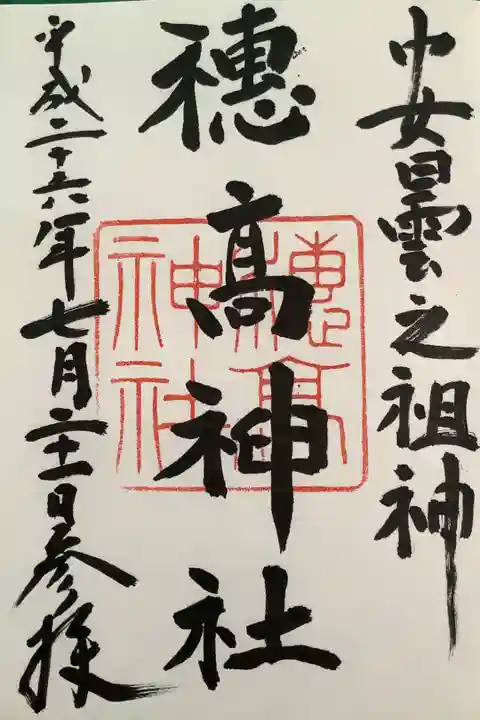 安曇之祖神
穗高神社
穗高神社
平成二十六年七月二十一日参拝